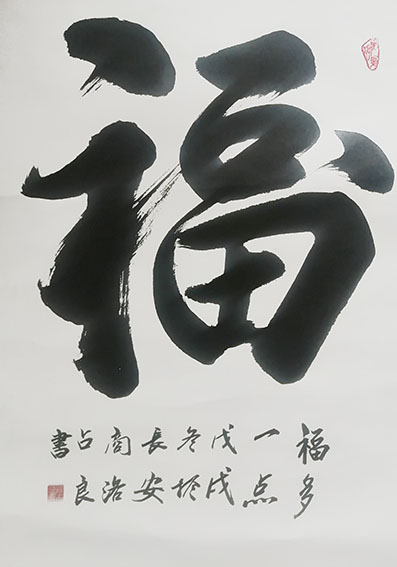 福
福多
一点
戊戌
冬於
長安
商洛
占良
書